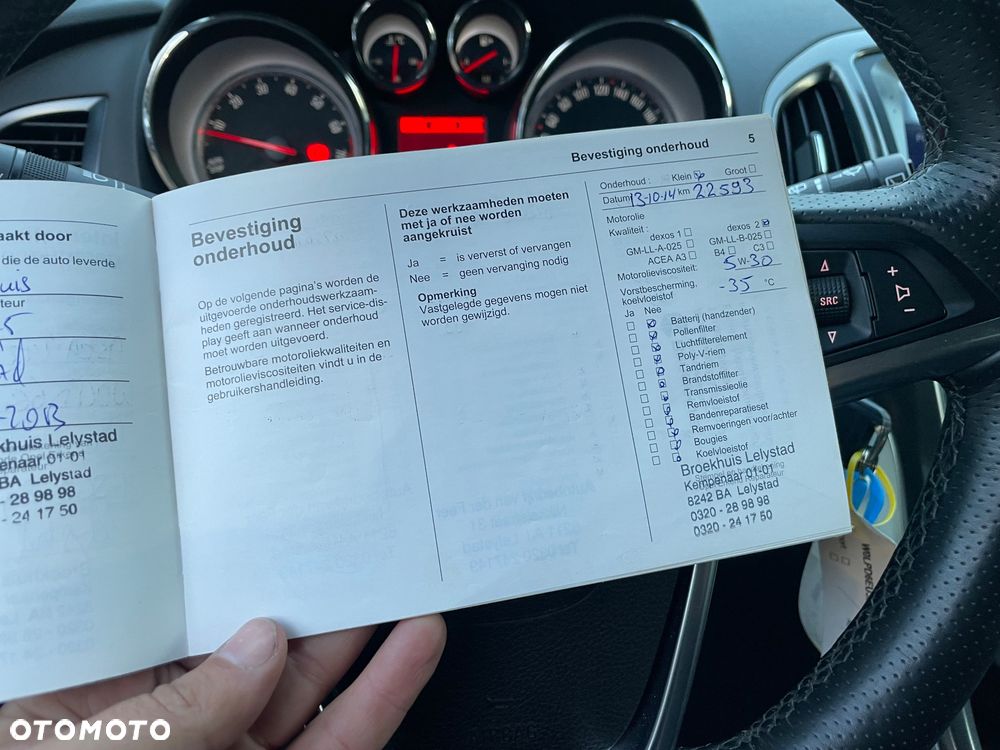 5
Bevestiging onderhoud
aakt door
die de auto leverde
teur
5
-20B
khuis Lelystad
penaar 01-01
BA Lelystad
- 28 98 98
- 24 17 50
Bevestiging
onderhoud
Op de volgende pagina's worden de
uitgevoerde onderhoudswerkzaam-
heden geregistreerd. Het service-dis-
play geeft aan wanneer onderhoud
moet worden uitgevoerd.
Betrouwbare motoroliekwaliteiten en
motorolieviscositeiten vindt u in de
gebruikershandleiding.
Deze werkzaamheden moeten
met ja of nee worden
aangekruist
Ja = is ververst of vervangen
Nee = geen vervanging nodig
Opmerking
Vastgelegde gegevens mogen niet
worden gewijzigd.
Onderhoud : Klein Groot
Datum 13-10-14 km 22593
Motorolie
Kwaliteit : dexos 1 dexos 2
GM-LL-A-025 GM-LL-B-025
ACEA A3 B4 C3
Motorolieviscositeit: 5W-30
Vorstbescherming,
koelvloeistof -35 °C
Ja Nee
Batterij (handzender)
Pollenfilter
Luchtfilterelement
Poly-V-riem
Tandriem
Brandstoffilter
Transmissieolie
Remvloeistof
Bandenreparatieset
Remvoeringen voor/achter
Bougies
Koelvloeistof
Broekhuis Lelystad
Kempenaar 01-01
8242 BA Lelystad
0320 - 28 98 98
0320 - 24 17 50
SRC
+
-
OTOMOTO